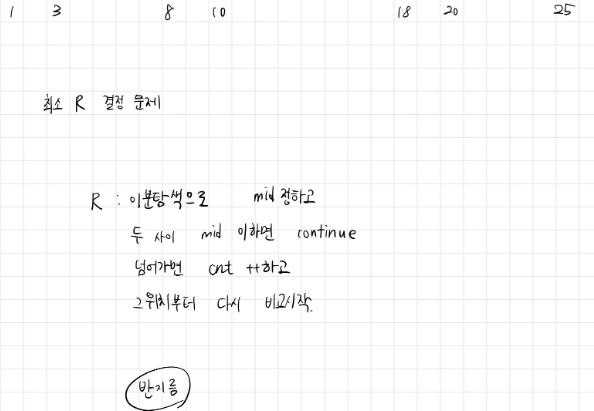 1 3 8 10 18 20 25
최소 R 결정 문제
R : 이분탐색으로 mid 정하고
두 사이 mid 이하면 continue
넘어가면 cnt ++하고
그위치부터 다시 비교시작.
반지름